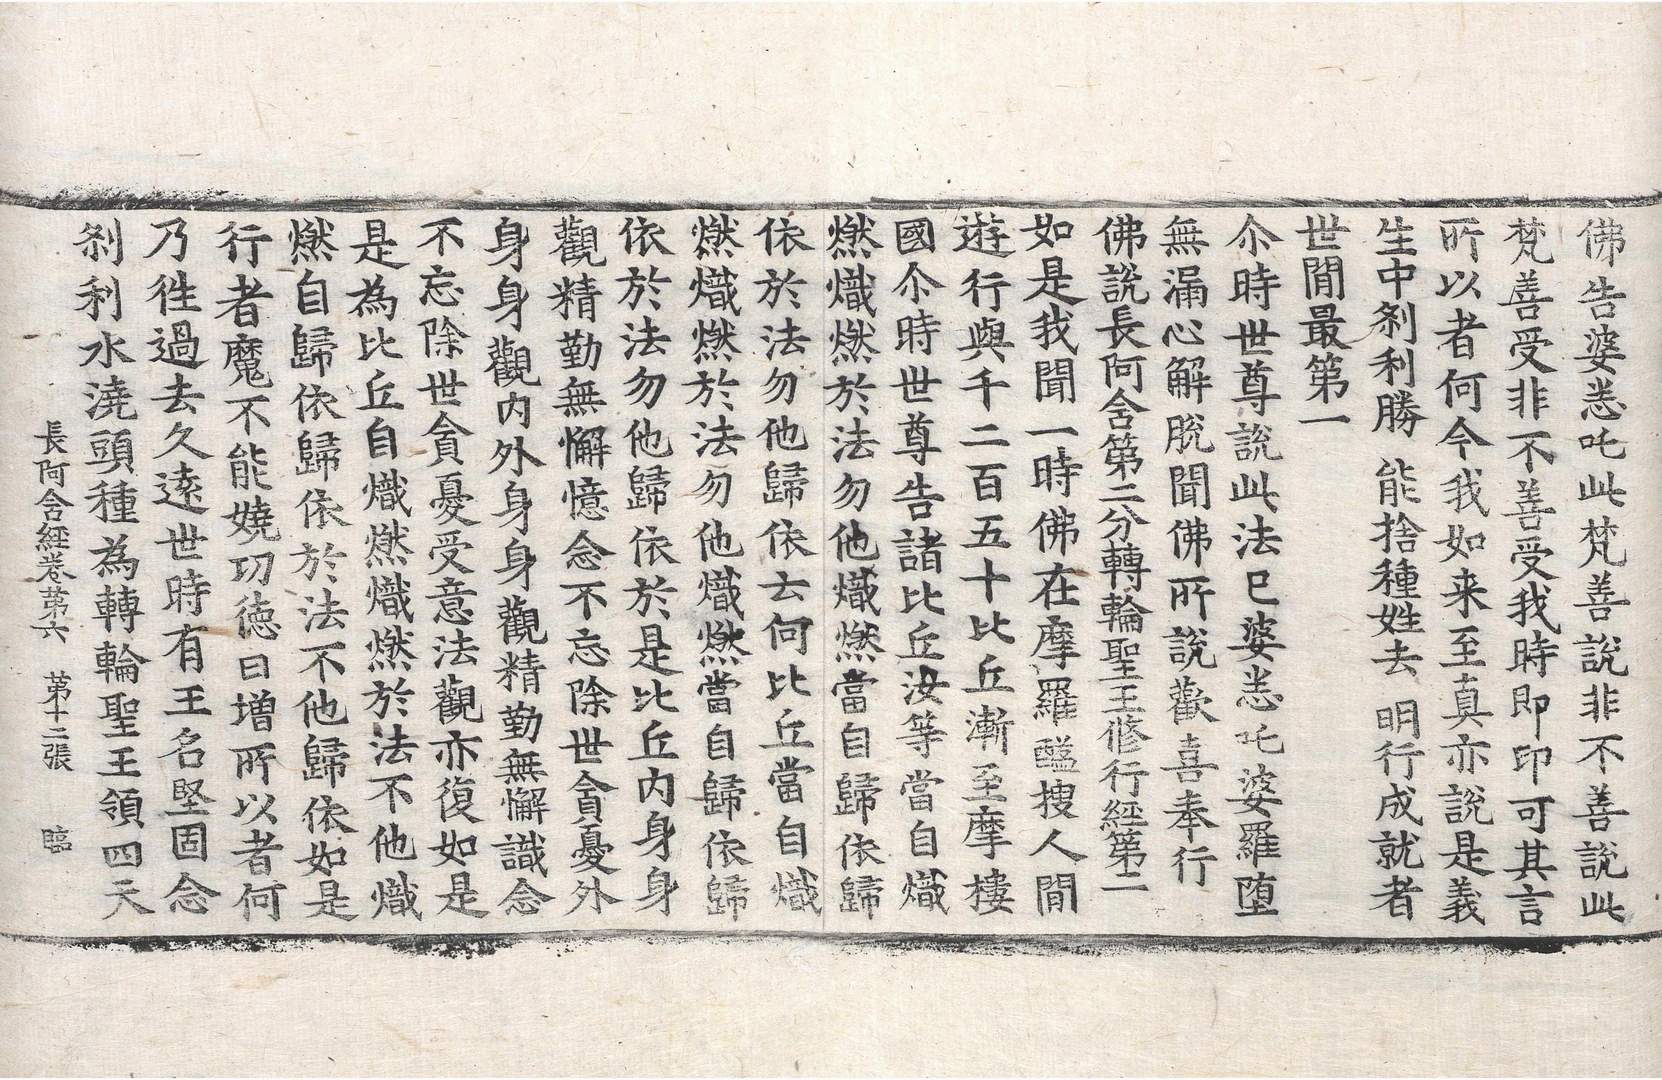 佛告婆悉吒此梵善說非不善說此
梵善受非不善受我時即印可其言
所以者何今我如来至真亦說是義
生中刹利勝 能捨種姓去 明行成就者
世閒最第一
尒時世尊說此法已婆悉吒婆羅墮
無漏心解脫聞佛所說歡喜奉行
佛說長阿含第二分轉輪聖王修行經第二
如是我聞一時佛在摩羅醯搜人閒
遊行與千二百五十比丘漸至摩樓
國尒時世尊告諸比丘汝等當自熾
燃熾燃於法勿他熾燃當自歸依歸
依於法勿他歸依云何比丘當自熾
燃熾燃於法勿他熾燃當自歸依歸
依於法勿他歸依於是比丘內身身
觀精勤無懈憶念不忘除世貪憂外
身身觀內外身身觀精勤無懈識念
不忘除世貪憂受意法觀亦復如是
是為比丘自熾燃熾燃於法不他熾
燃自歸依歸依於法不他歸依如是
行者魔不能嬈功徳日增所以者何
乃往過去久遠世時有王名堅固念
刹利水澆頭種為轉輪聖王領四天
長阿含經卷第六 第十二張 臨